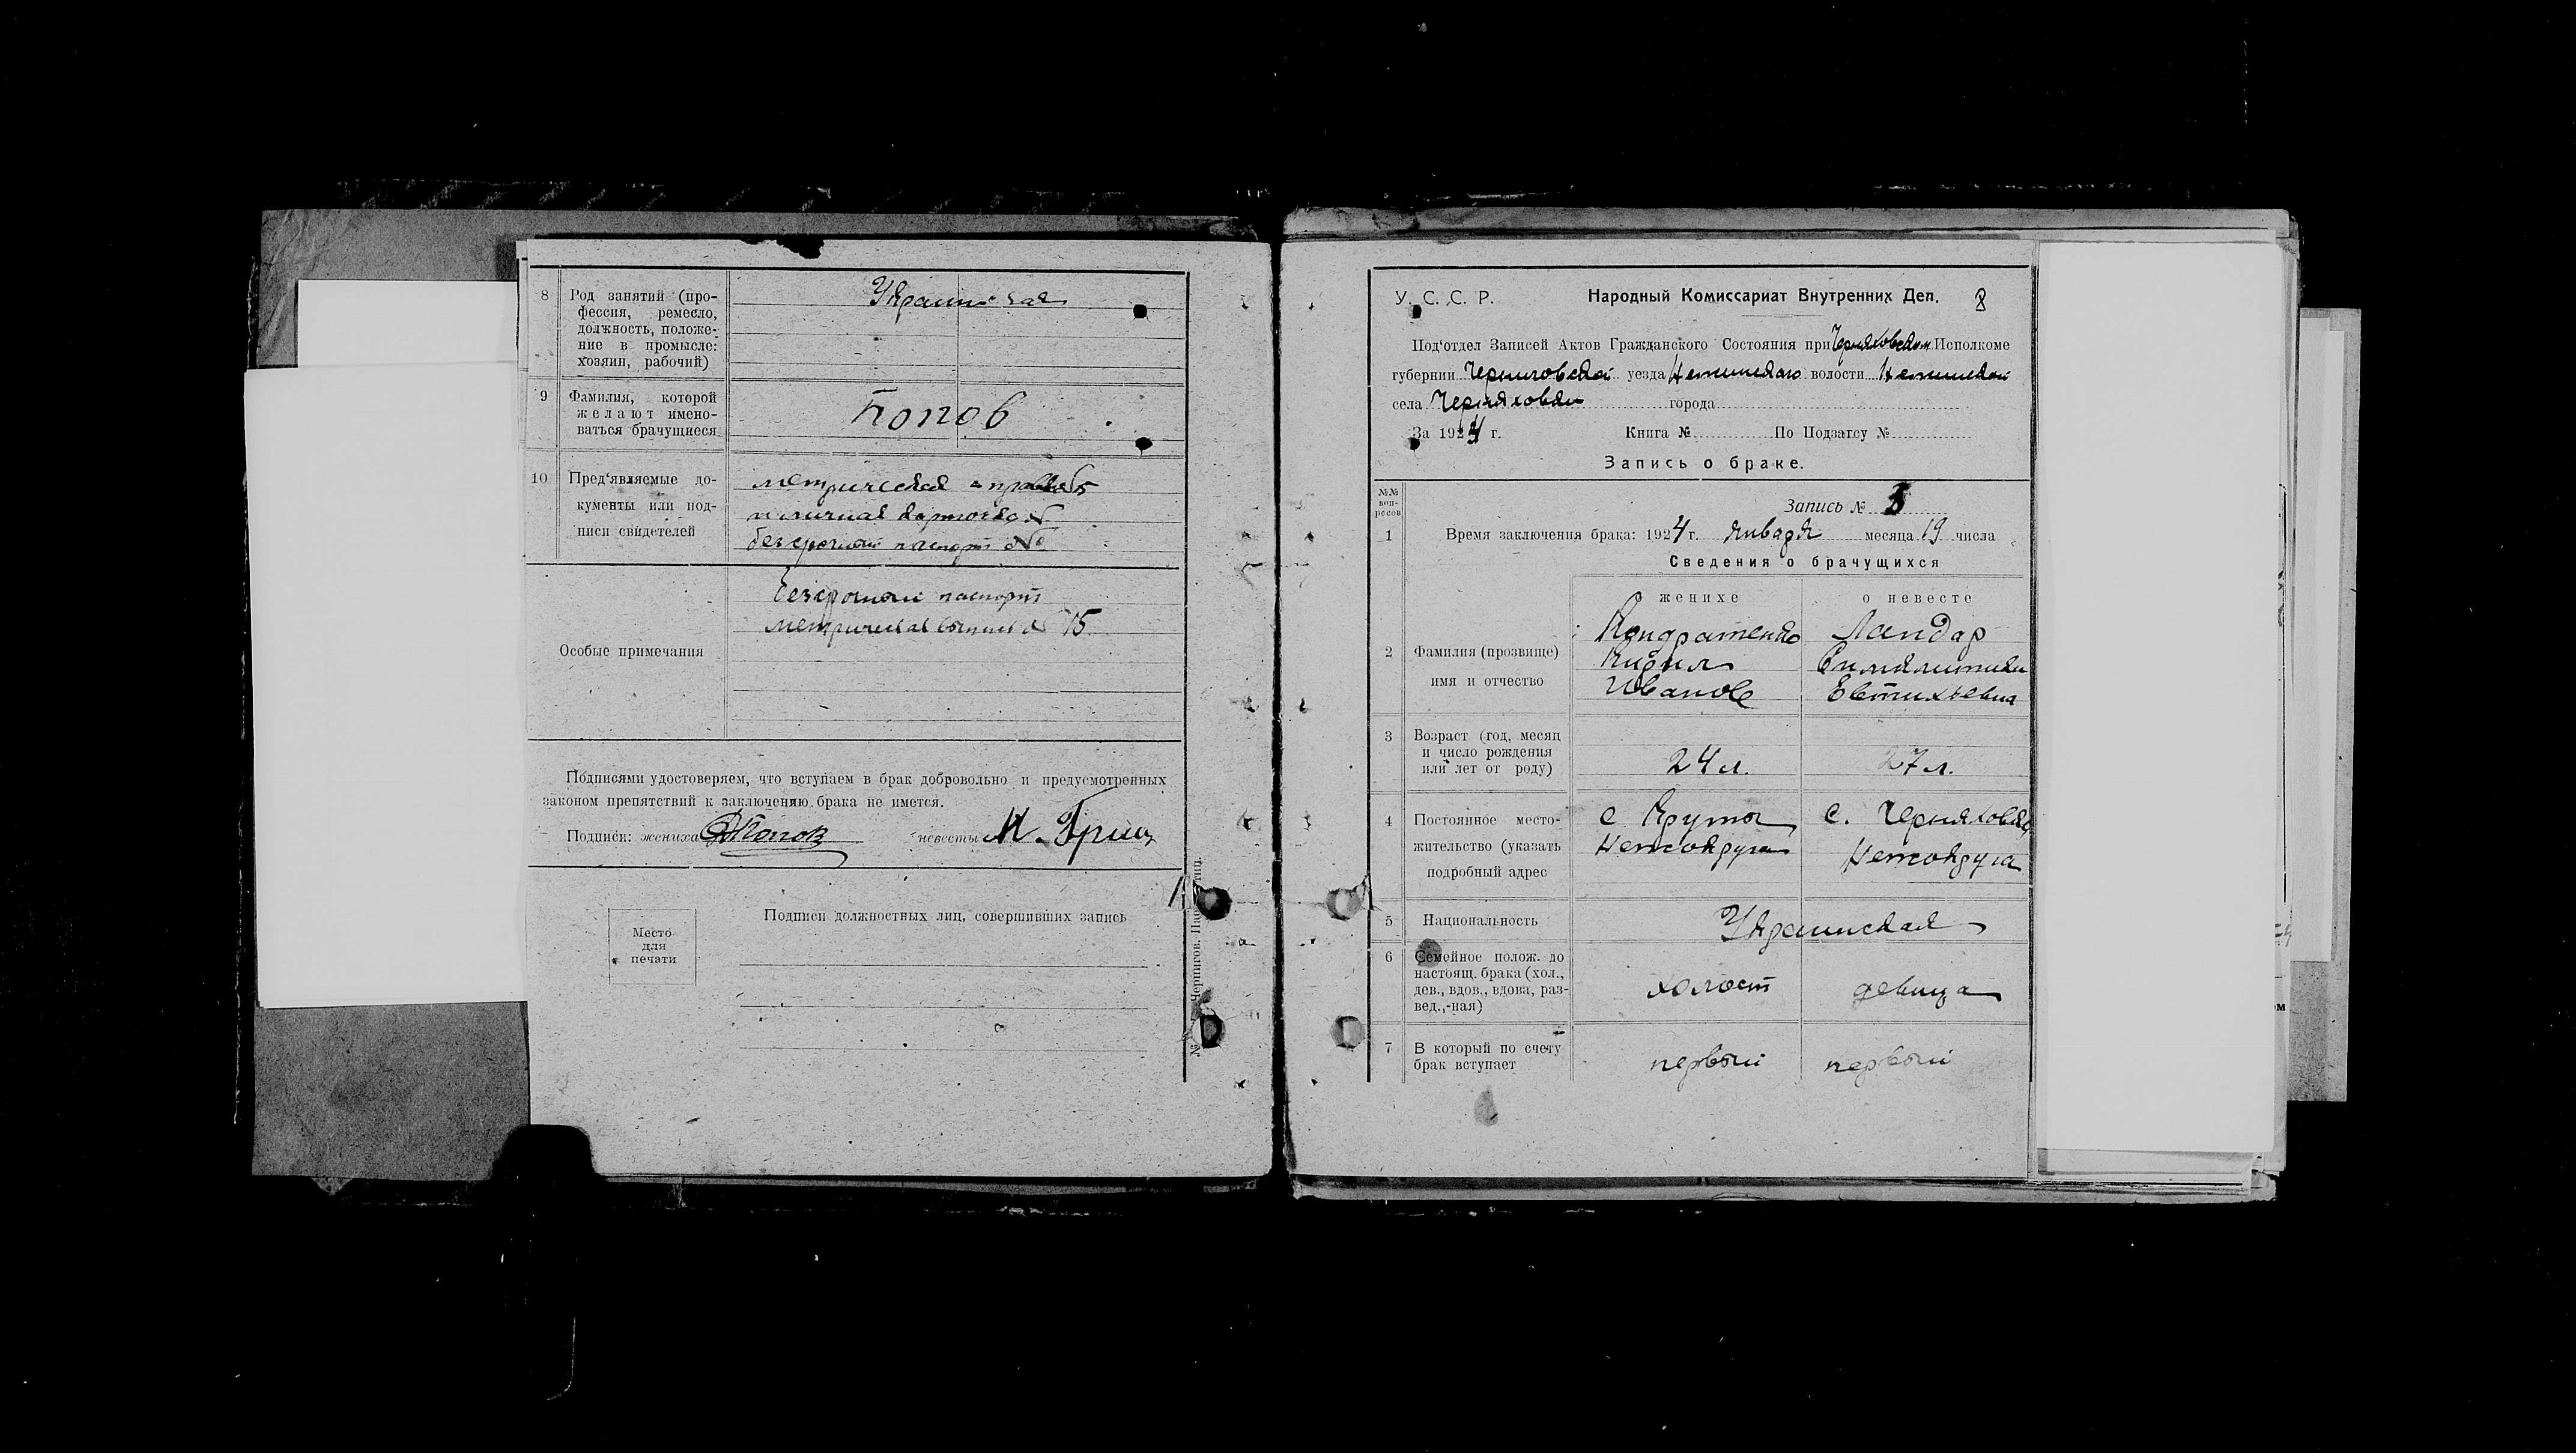 8 Род занятий (про-
фессия, ремесло,
должность, положе-
ние в промысле:
хозяин, рабочий)
9 Фамилия, которой
желают имено-
ваться брачущиеся
Попов
10 Пред'являемые до-
кументы или под-
писи свидетелей
метрическая
безсрочный паспорт №
Особые примечания
Безсрочный паспорт
15
Подписями удостоверяем, что вступаем в брак добровольно и предусмотренных
законом препятствий к заключению брака не имется.
Подписи: жениха Попов невесты М. Гриц
Место
для
печати
Подписи должностных лиц, совершивших запись
У. С. С. Р. Народный Комиссариат Внутренних Дел. 8
Под'отдел Записей Актов Гражданского Состояния при Черняховском Исполкоме
губернии Черниговской уезда Нежинского волости Нежинской
села Черняховки города
За 1924 г. Книга № По Подзагсу №
Запись о браке.
№№
воп-
росов
Запись №
1 Время заключения брака: 1924 г. Января месяца 19 числа
Сведения о брачущихся
о женихе о невесте
2 Фамилия (прозвище)
имя и отчество
Кондратенко Ландар
Кирил
Иванов Евтихьевна
3 Возраст (год, месяц
и число рождения
или лет от роду)
24 л. 27 л.
4 Постоянное место-
жительство (указать
подробный адрес
с Круты с. Черняховка
Нежокруга Нежокруга
5 Национальность Украинская
6 Семейное полож. до
настоящ. брака (хол.,
дев., вдов., вдова, раз-
вед.,-ная)
холост девица
7 В который по счету
брак вступает
первый первый